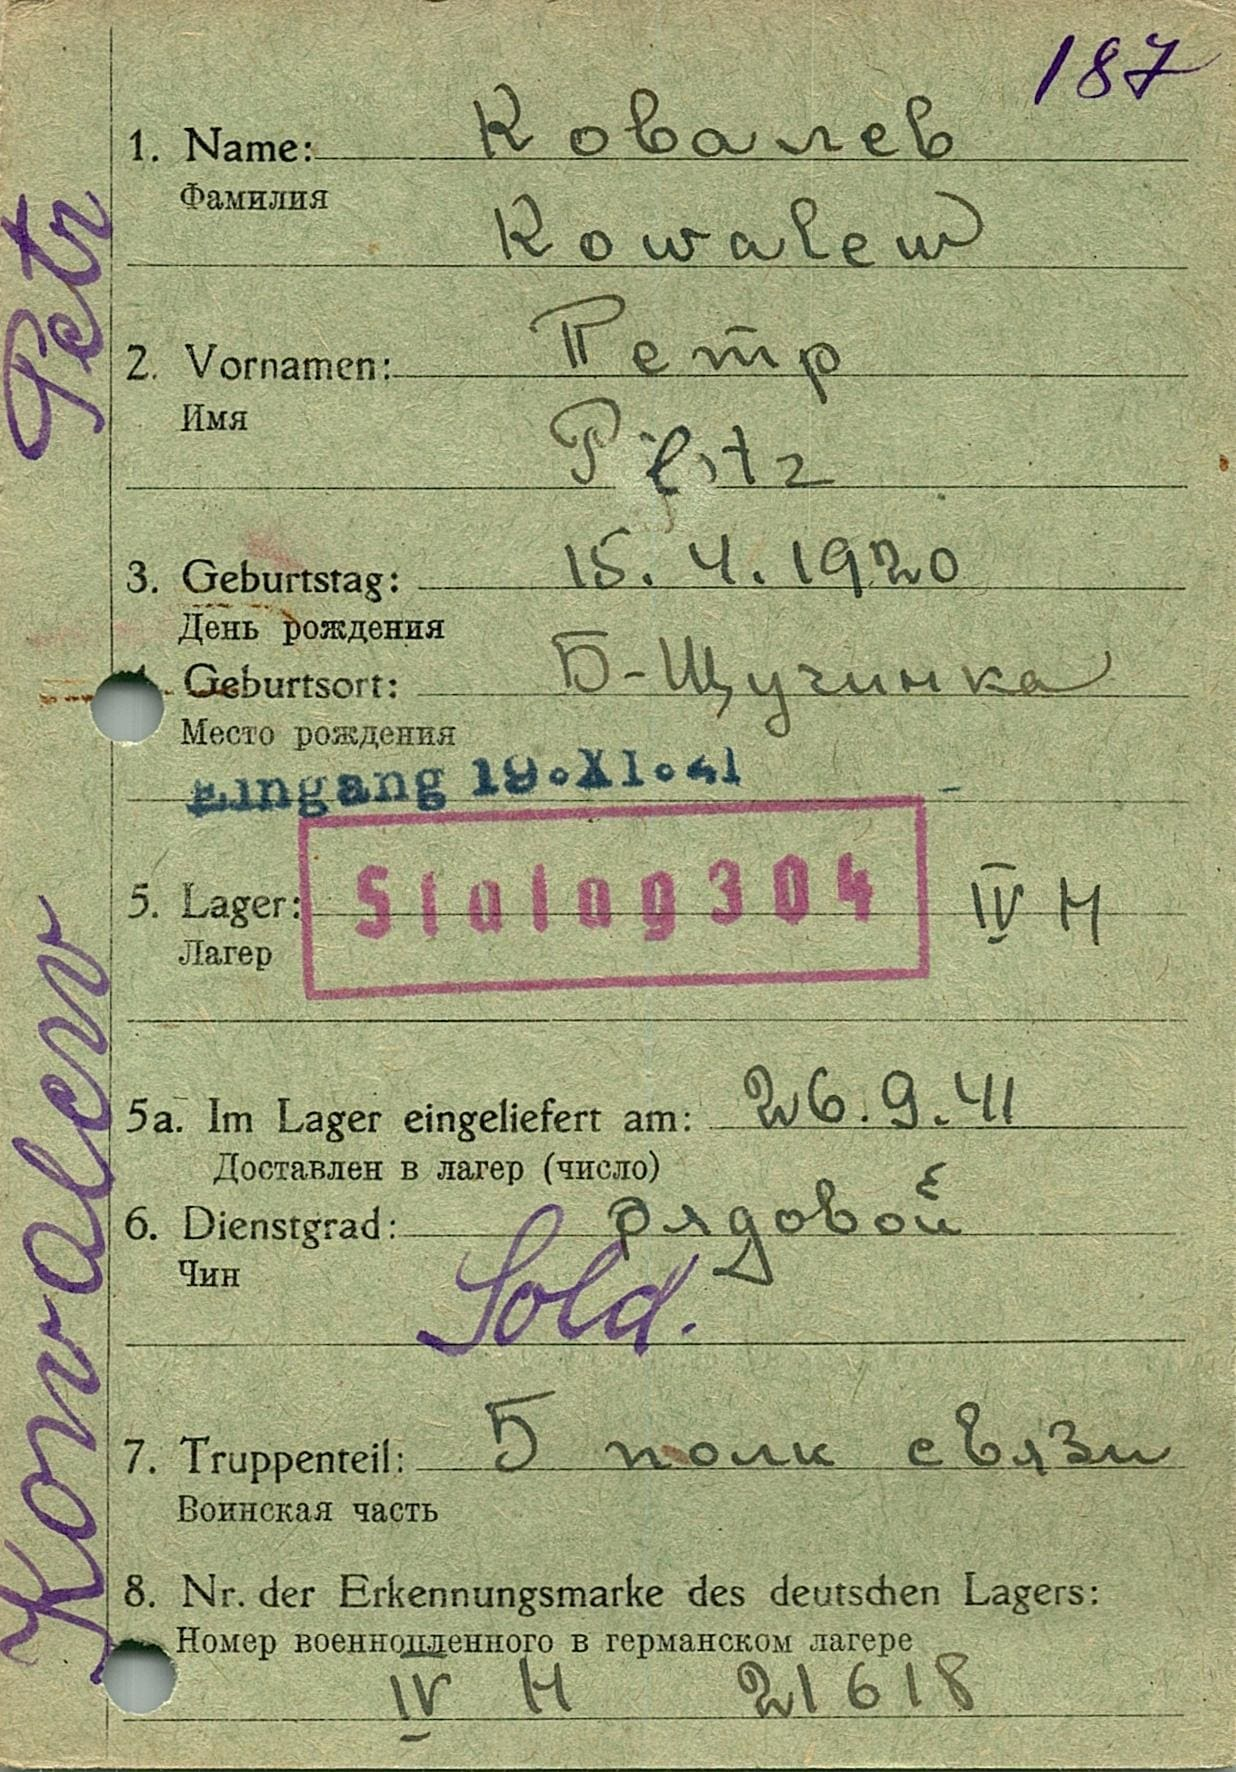 187
1. Name: Ковалев
Фамилия
Kowalew
2. Vornamen: Петр
Имя
3. Geburtstag: 15. 4. 1920
День рождения
Geburtsort: Б-Щучинка
Место рождения
Eingang 19.XI.41
5. Lager: Stalag 304 IV H
Лагер
5a. Im Lager eingeliefert am: 26.9.41
Доставлен в лагер (число)
6. Dienstgrad: рядовой
Чин
Sold.
7. Truppenteil: 5 полк связи
Воинская часть
8. Nr. der Erkennungsmarke des deutschen Lagers:
Номер военнопленного в германском лагере
IV H 21618
Kowalew Petr